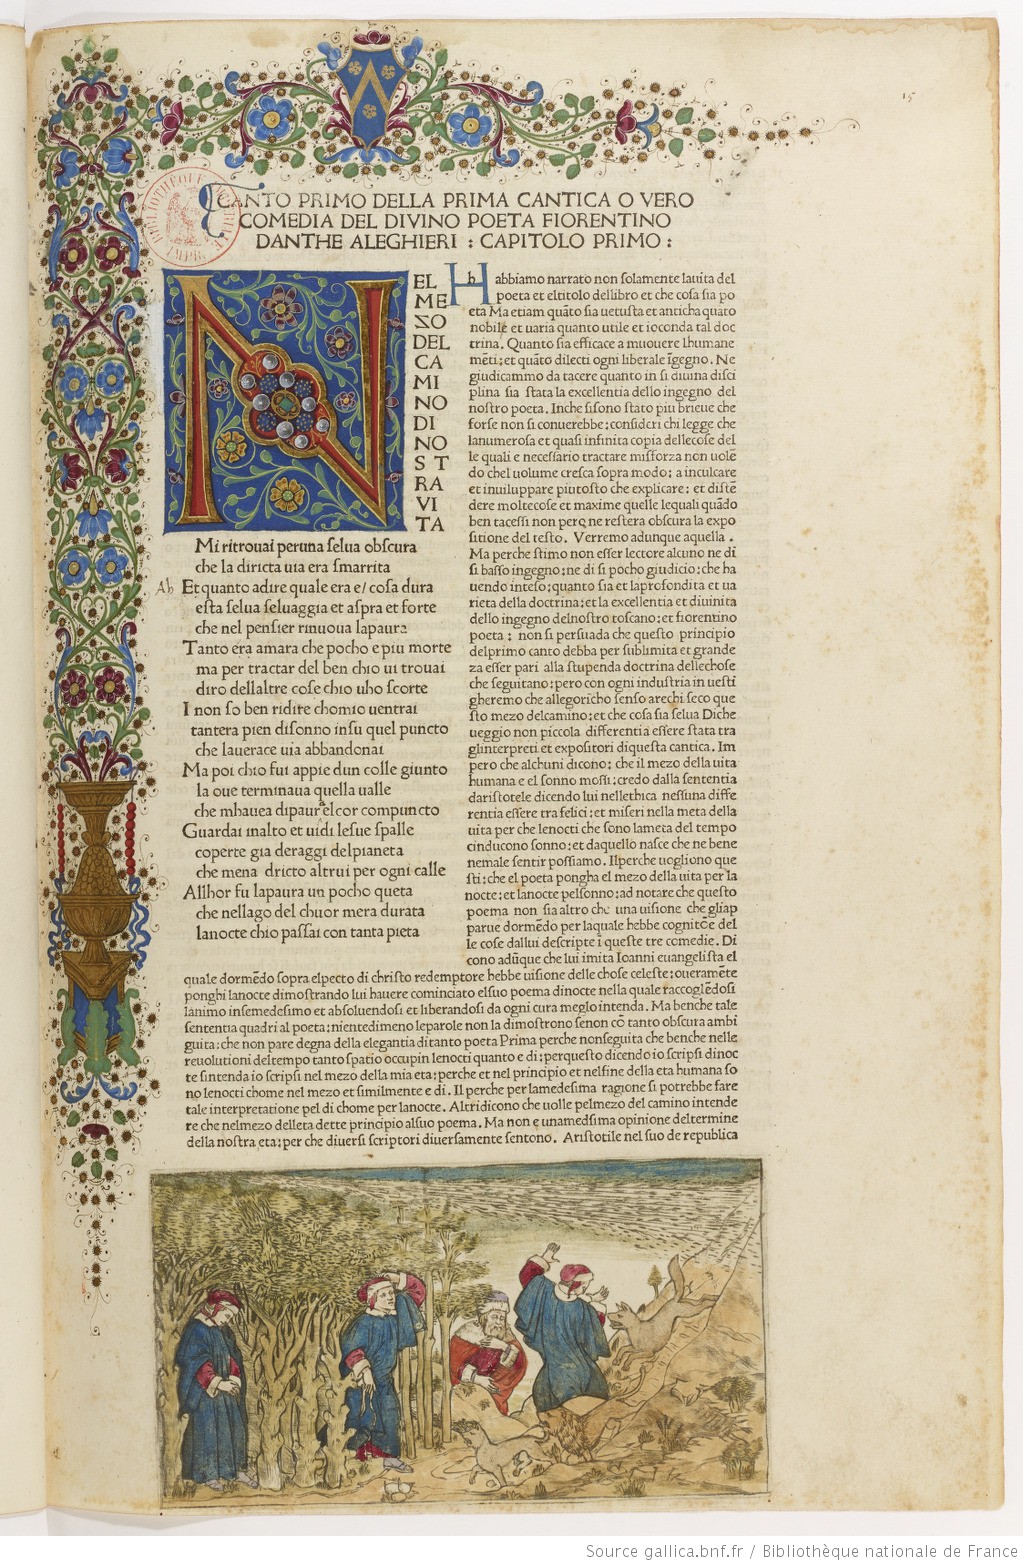 15
CANTO PRIMO DELLA PRIMA CANTICA O VERO
COMEDIA DEL DIVINO POETA FIORENTINO
DANTHE ALEGHIERI : CAPITOLO PRIMO :
N
EL
ME
ZO
DEL
CA
MI
NO
DI
NO
S T
RA
VI
TA
Mi ritrouai peruna selua obscura
che la diricta uia era smarrita
Et quanto adire quale era e/ cosa dura
esta selua seluaggia et aspra et forte
che nel pensier rinuoua lapaura
Tanto era amara che pocho e piu morte
ma per tractar del ben chio ui trouai
diro dellaltre cose chio uho scorte
I non so ben ridire chomio uentrai
tantera pien disonno insu quel puncto
che lauerace uia abbandonai
Ma poi chio fui appie dun colle giunto
la oue terminaua quella ualle
che mhauea dipaura elcor compuncto
Guardai inalto et uidi lesue spalle
coperte gia deraggi delpianeta
che mena dricto altrui per ogni calle
Allhor fu lapaura un pocho queta
che nellago del chuor mera durata
lanocte chio passai con tanta pieta
Habbiamo narrato non solamente lauita del
poeta et eltitolo dellibro et che cosa sia po
eta Ma etiam quãto sia uetusta et anticha quãto
nobile et uaria quanto utile et ioconda tal doc
trina. Quanto sia efficace a muouere lhumane
mẽti: et quãto dilecti ogni liberale ĩgegno. Ne
giudicammo da tacere quanto in si diuina disci
plina sia stata la excellentia dello ingegno del
nostro poeta. Inche sisono stato piu brieue che
forse non si conuerrebbe: consideri chi legge che
lanumerosa et quasi infinita copia dellecose del
le quali e necessario tractare missorza non uolẽ
do chel uolume cresca sopra modo: a inculcare
et inuiluppare piutosto che explicare: et distẽ
dere moltecose et maxime quelle lequali quãdo
ben tacessi non pero ne restera obscura la expo
sitione del testo. Verremo adunque aquella.
Ma perche stimo non esser lectore alcuno ne di
si basso ingegno: ne di si pocho giudicio: che ha
uendo inteso: quanto sia et laprofondita et ua
rieta della doctrina: et la excellentia et diuinita
dello ingegno delnostro toscano: et fiorentino
poeta: non si persuada che questo principio
delprimo canto debba per sublimita et grande
za esser pari alla stupenda doctrina dellechose
che seguitano: pero con ogni industria inuesti
gheremo che allegoricho senso arechi seco que
sto mezo delcamino: et che cosa sia selua Diche
ueggio non piccola differentia essere stata tra
glinterpreti et expositori diquesta cantica. Im
pero che alchuni dicono: che il mezo della uita
humana e el sonno mossi: credo dalla sententia
daristotele dicendo lui nellethica nessuna diffe
rentia essere tra felici: et miseri nella meta della
uita per che lenocti che sono lameta del tempo
cinducono sonno: et daquello nasce che ne bene
nemale sentir possiamo. Ilperche uogliono que
sti: che el poeta pongha el mezo della uita per la
nocte: et lanocte pelsonno: ad notare che questo
poema non sia altro che una uisione che gliap
parue dormẽdo per laquale hebbe cognitiõe del
le cose dallui descripte ĩ queste tre comedie. Di
cono adũque che lui imita Ioanni euangelista el
quale dormẽdo sopra elpecto di christo redemptore hebbe uisione delle chose celeste: oueramẽte
ponghi lanocte dimostrando lui hauere cominciato elsuo poema dinocte nella quale raccoglẽdosi
lanimo insemedesimo et absoluendosi et liberandosi da ogni cura meglo intenda. Ma benche tale
sententia quadri al poeta: nientedimeno leparole non la dimostrono senon cõ tanto obscura ambi
guita: che non pare degna della elegantia ditanto poeta Prima perche nonseguita che benche nelle
reuolutioni deltempo tanto spatio occupin lenocti quanto e di: perquesto dicendo io scripsi dinoc
te sintenda io scripsi nel mezo della mia eta: perche et nel principio et nelfine della eta humana so
no lenocti chome nel mezo et similmente e di. Il perche per lamedesima ragione si potrebbe fare
tale interpretatione pel di chome per lanocte. Altri dicono che uolle pelmezo del camino intende
re che nelmezo delleta dette principio alsuo poema. Ma non e unamedesima opinione deltermine
della nostra eta: per che diuersi scriptori diuersamente sentono. Aristotile nel suo de republica
Source gallica.bnf.fr / Bibliothèque nationale de France